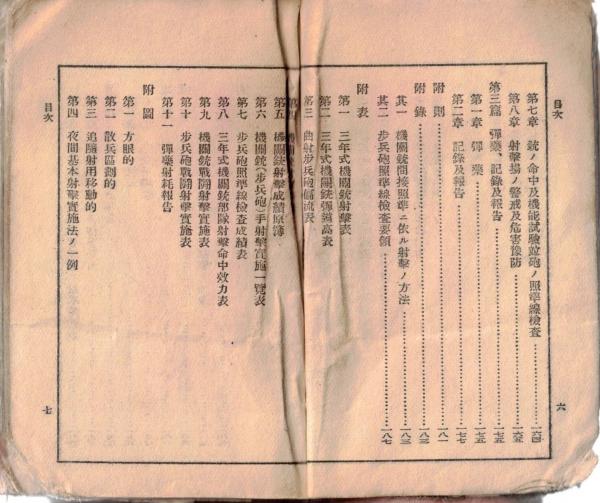 目次
第七章 銃ノ命中及機能試驗竝砲ノ照準線檢査 一六四
第八章 射擊場ノ警戒及危害豫防 一六五
第三篇 彈藥、記錄及報告 一七五
第一章 彈藥 一七五
第二章 記錄及報告 一七七
附則 一八一
附錄 一八三
其一 機關銃間接照準ニ依ル射擊ノ方法 一八三
其二 步兵砲照準線檢査要領 一八七
附表
第一 三年式機關銃射擊表
第二 三年式機關銃彈道高表
第三 曲射步兵砲
第四
第五 機關銃射擊成績原簿
第六 機關銃(步兵砲)手射擊實施一覽表
第七 步兵砲照準線檢査成績表
第八 三年式機關銃部隊射擊命中效力表
第九 機關銃戰鬪射擊實施表
第十 步兵砲戰鬪射擊實施表
第十一 彈藥射耗報告
附圖
第一 方眼的
第二 散兵區劃的
第三 追隨射用移動的
第四 夜間基本射擊實施法ノ一例
目次
六
七